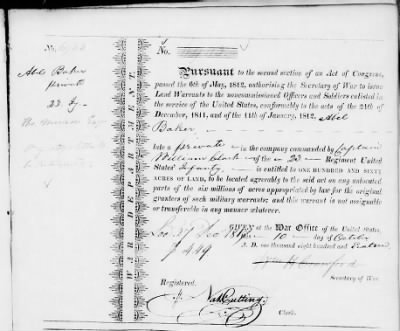 No.
Abel Baker
private
23 Inf
PURSUANT to the second section of an Act of Congress,
passed the 6th of May, 1812, authorising the Secretary of War to issue
Land Warrants to the noncommissioned Officers and Soldiers enlisted in
the service of the United States, conformably to the acts of the 24th of
December, 1811, and of the 11th of January, 1812, Abel
Baker
late a private in the company commanded by Captain
William Clark of the 23 Regiment United
States' Infantry, is entitled to ONE HUNDRED AND SIXTY
ACRES OF LAND, to be located agreeably to the said act on any unlocated
parts of the six millions of acres appropriated by law for the original
grantees of such military warrants; and this warrant is not assignable
or transferable in any manner whatever.
WAR DEPARTMENT
GIVEN at the War Office of the United States,
this 10 day of October
A. D. one thousand eight hundred and
Wm H Crawford
Secretary of War.
Registered.
Nat Cutting
Clerk.